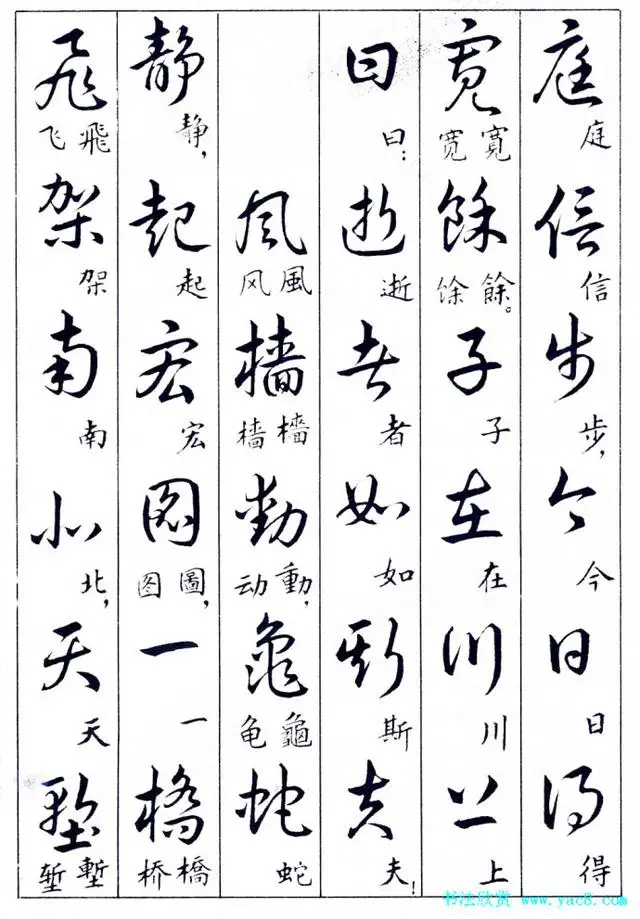 庭信步今日得
庭信步，今日得
寬餘子在川上
宽寬馀餘。子在川上
曰逝者如斯夫
曰：逝者如斯夫！
風樯動龜蛇
风風樯檣动動，龟龜蛇
静起宏圖一橋
静，起宏图圖，一桥橋
飛架南北天塹
飞飛架南北，天堑塹
书法欣赏 www.yac8.com